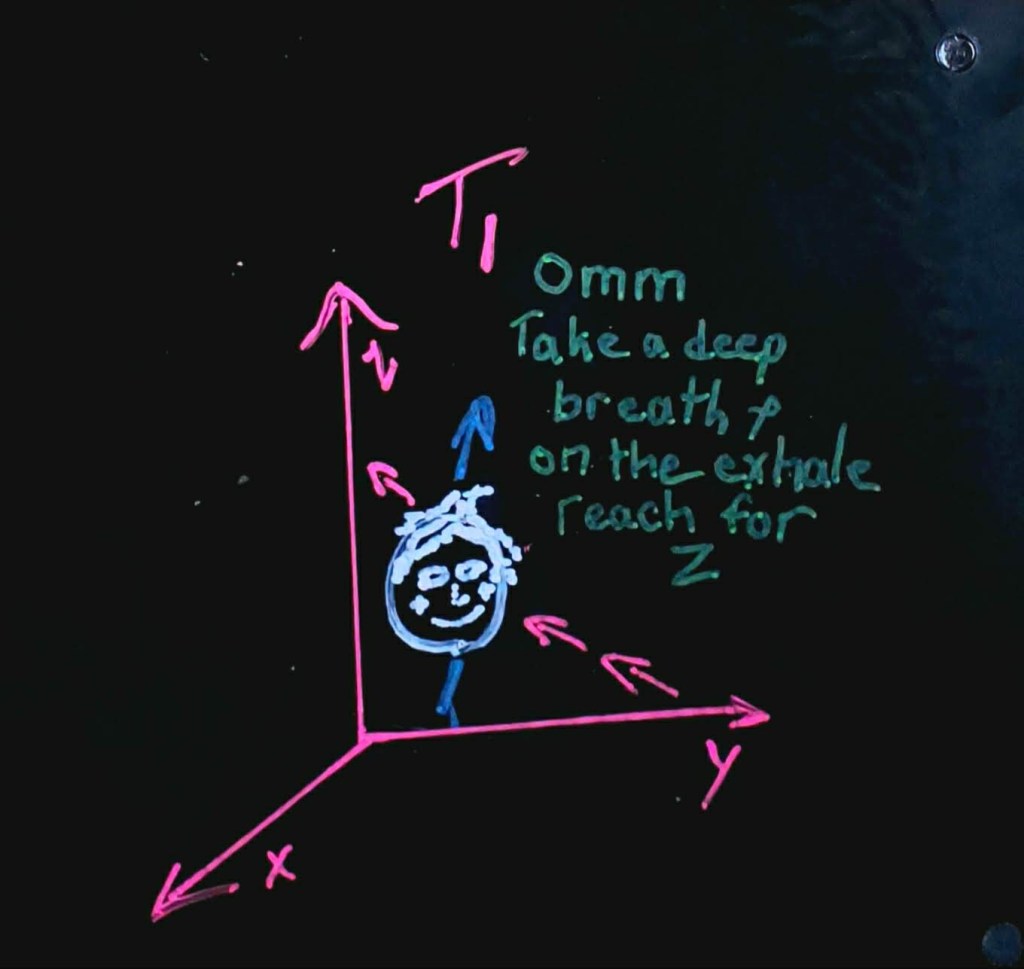 T1
Omm
Take a deep
breath &
on the exhale
reach for
Z
Z
y
x